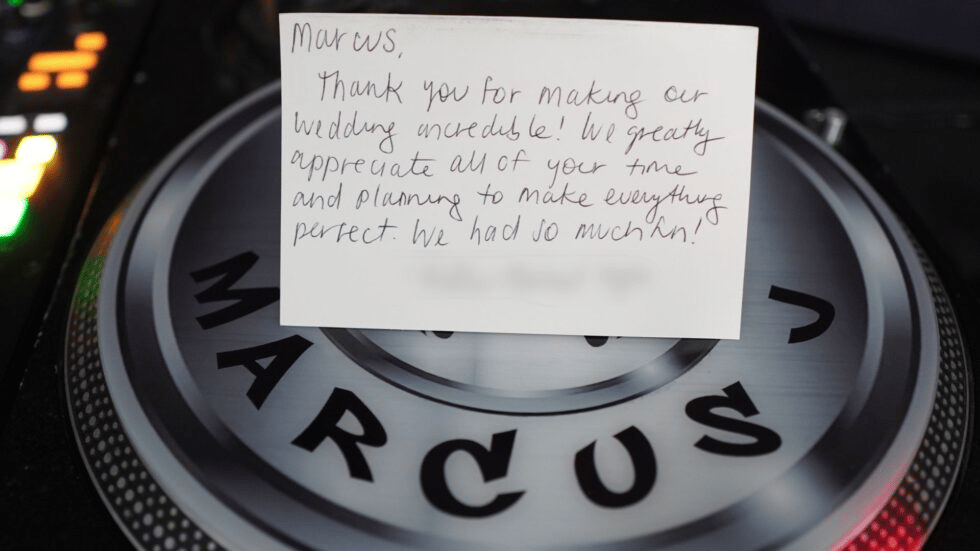 Marcus,
Thank you for making our
wedding incredible! We greatly
appreciate all of your time
and planning to make everything
perfect. We had so much fun!
MARCUS